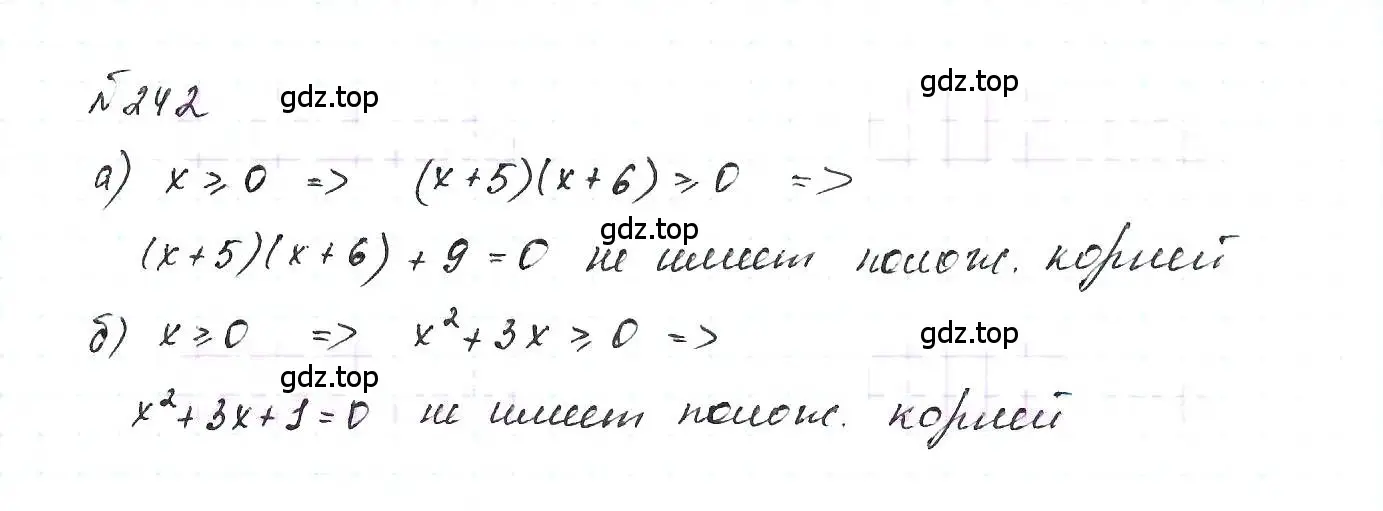 №242
gdz.top
gdz.top
а) x ⩾ 0 => (x+5)(x+6) ⩾ 0 =>
gdz.top
(x+5)(x+6) + 9 = 0 не имеет полож. корней
б) x ⩾ 0 => x² + 3x ⩾ 0 =>
gdz.top
gdz.top
x² + 3x + 1 = 0 не имеет полож. корней